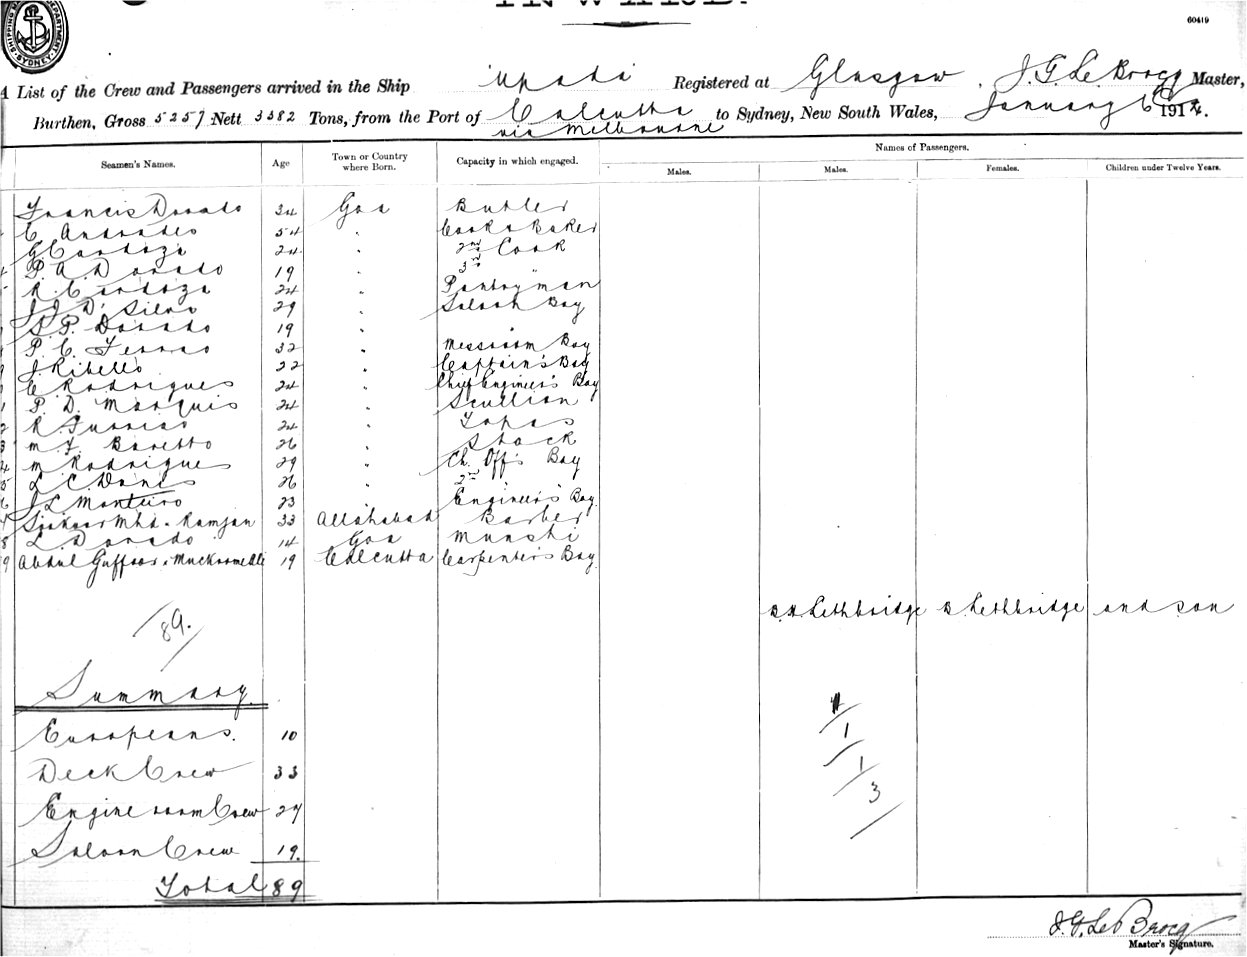 INWARD.
60419
SHIPPING DEPARTMENT. SYDNEY
A List of the Crew and Passengers arrived in the Ship "Upada" Registered at Glasgow, J. G. Le Brocq Master,
Burthen, Gross 5257 Nett 3382 Tons, from the Port of Calcutta to Sydney, New South Wales, January 6th 1914.
via Melbourne
Seamen's Names. Age Town or Country where Born. Capacity in which engaged. Names of Passengers.
Males. Males. Females. Children under Twelve Years.
Francis Dorado 34 Goa Butler
C Andrades 54 " Cook & Baker
G Cardoza 24 " 2nd Cook
P. A. Dorado 19 " 3rd "
R Cardoza 24 " Pantryman
J J D' Silva 29 " Saloon Boy
S P. Dorado 19 "
P. C. Ferrao 32 " Messroom Boy
J Ribello 22 " Captain's Boy
C Rodrigues 24 " Chief Engineer's Boy
P. D. Marquis 24 " Scullion
R Furrias 24 " Topas
M F. Baretto 26 " Shack
M Rodrigues 29 " Ch. Off's Boy
L C. Danes 26 " 2nd
J L Monteiro 23 Engineer's Boy
Mhd. Ramjan 33 Allahabad Barber
L. Dorado 14 Goa Munshi
Abdul Guffoor 19 Calcutta Carpenter's Boy
Lethbridge Lethbridge and son
89.
Summary.
Europeans. 10
Deck Crew 33
Engine room Crew 27
Saloon Crew 19.
Total 89
1
1
1
3
J. G. Le Brocq
Master's Signature.